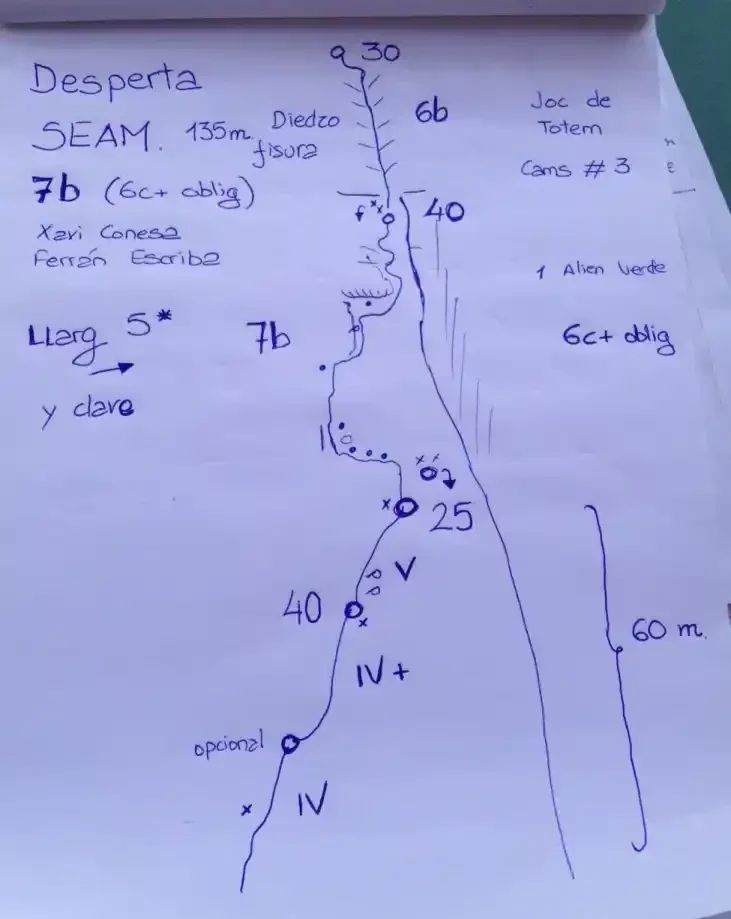 Desperta
SEAM. 135m. Diedro
fisura
7b (6c+ oblig)
Xavi Conesa
Ferrán Escriba
Llarg 5*
y clave
30
6b
40
7b
25
V
40
IV+
opcional
IV
60 m.
Joc de
Totem
Cams # 3
1 Alien verde
6c+ oblig